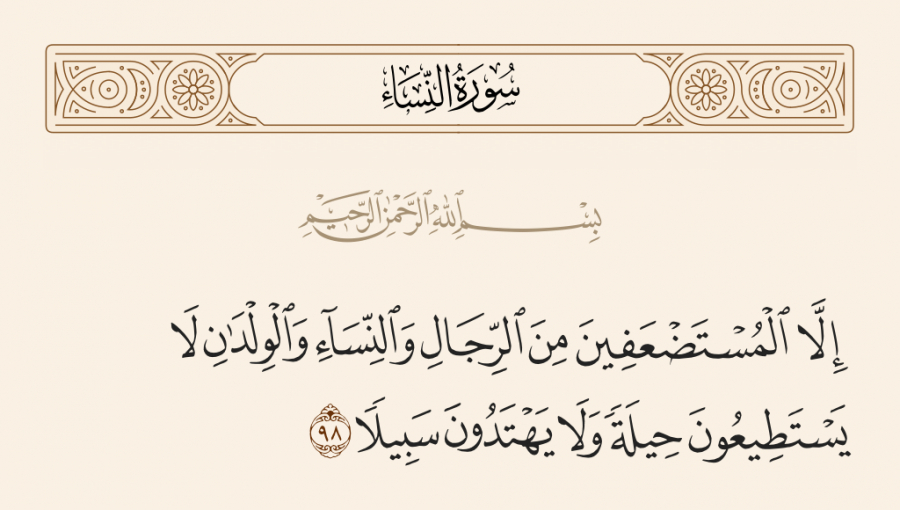 سُورَةُ النِّسَاءِ
بِسْمِ اللَّهِ الرَّحْمَٰنِ الرَّحِيمِ
إِلَّا ٱلْمُسْتَضْعَفِينَ مِنَ ٱلرِّجَالِ وَٱلنِّسَآءِ وَٱلْوِلْدَٰنِ لَا
يَسْتَطِيعُونَ حِيلَةً وَلَا يَهْتَدُونَ سَبِيلًا ٩٨